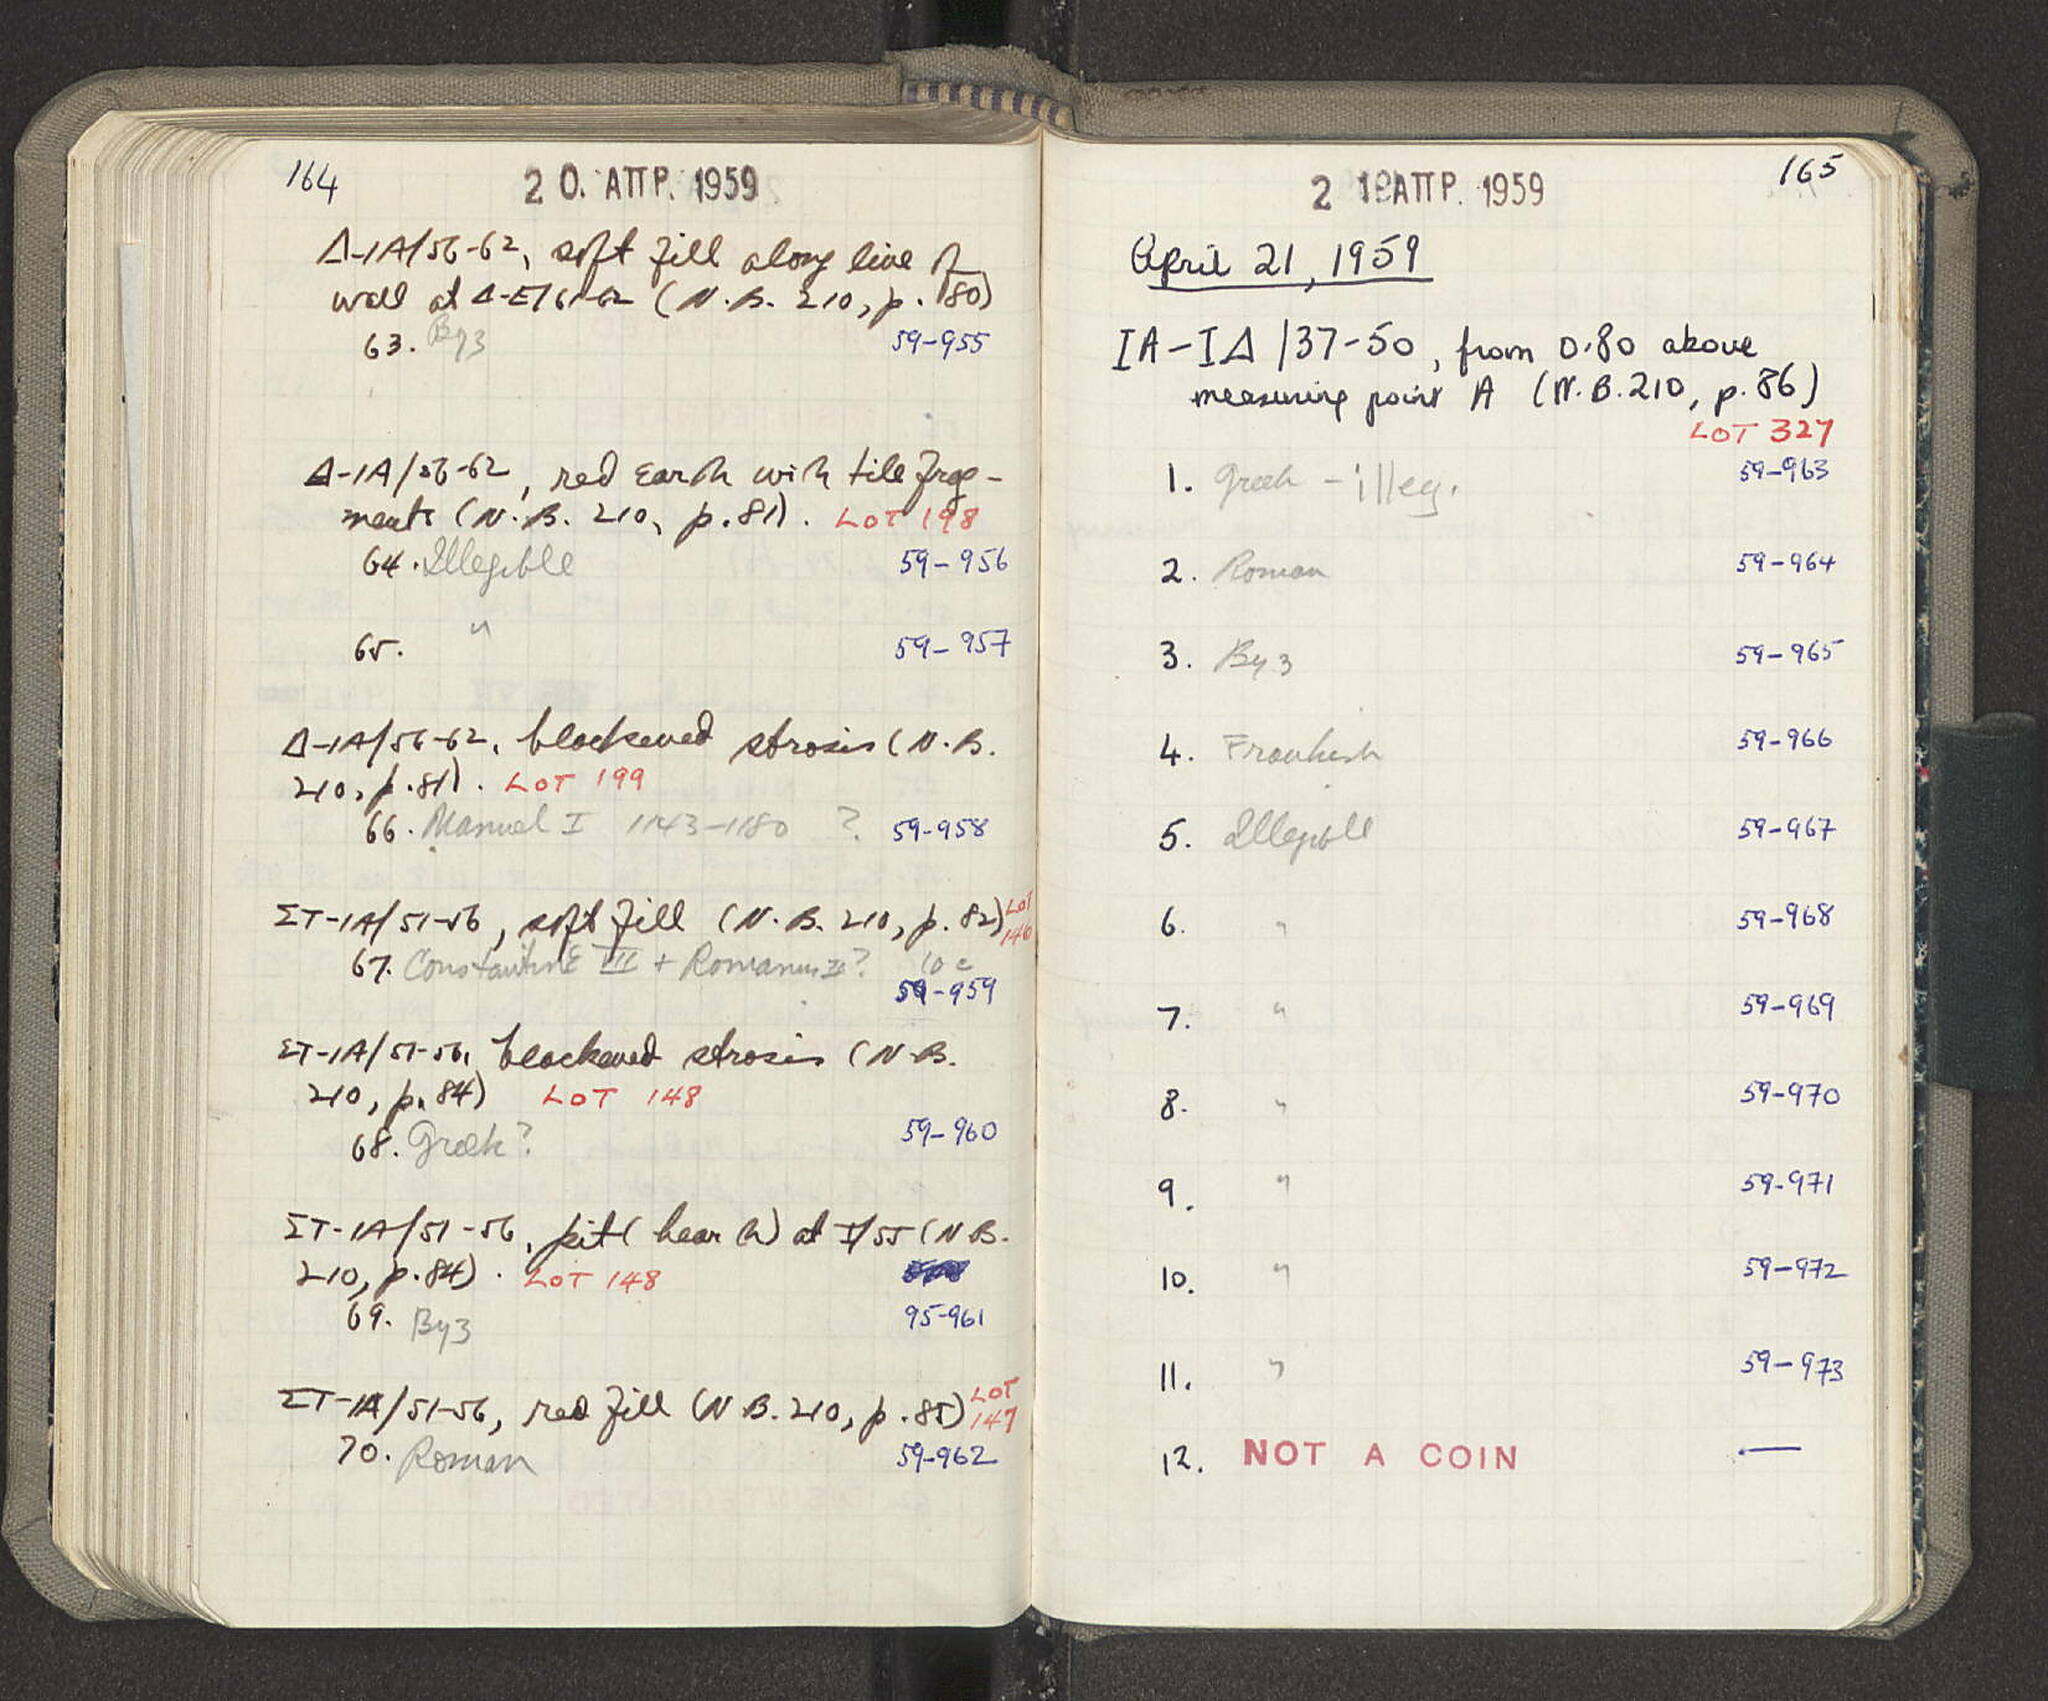 164
20. ΑΠΡ. 1959
Δ-ΙΑ/56-62, soft fill along line of
wall at Δ-Ε/61-62 (N.B. 210, p. 80)
63. Byz 59-955
Δ-ΙΑ/56-62, red earth with tile frag-
ments (N.B. 210, p. 81). LOT 198
64. Illegible 59-956
65. " 59-957
Δ-ΙΑ/56-62, blackened strosis (N.B.
210, p. 81). LOT 199
66. Manuel I 1143-1180 ? 59-958
ΣΤ-ΙΑ/51-56, soft fill (N.B. 210, p. 82) LOT
146
67. Constantine VII + Romanus II? 10 c
59-959
ΣΤ-ΙΑ/51-56, blackened strosis (N.B.
210, p. 84) LOT 148
68. Greek? 59-960
ΣΤ-ΙΑ/51-56, pit (hearth) at I/55 (N.B.
210, p. 84). LOT 148
69. Byz 95-961
ΣΤ-ΙΑ/51-56, red fill (N.B. 210, p. 85) LOT
147
70. Roman 59-962
165
2 ΑΠΡ. 1959
April 21, 1959
ΙΑ-ΙΔ/37-50, from 0.80 above
measuring point A (N.B. 210, p. 86)
LOT 327
1. Greek - illeg. 59-963
2. Roman 59-964
3. Byz 59-965
4. Frankish 59-966
5. Illegible 59-967
6. " 59-968
7. " 59-969
8. " 59-970
9. " 59-971
10. " 59-972
11. " 59-973
12. NOT A COIN —